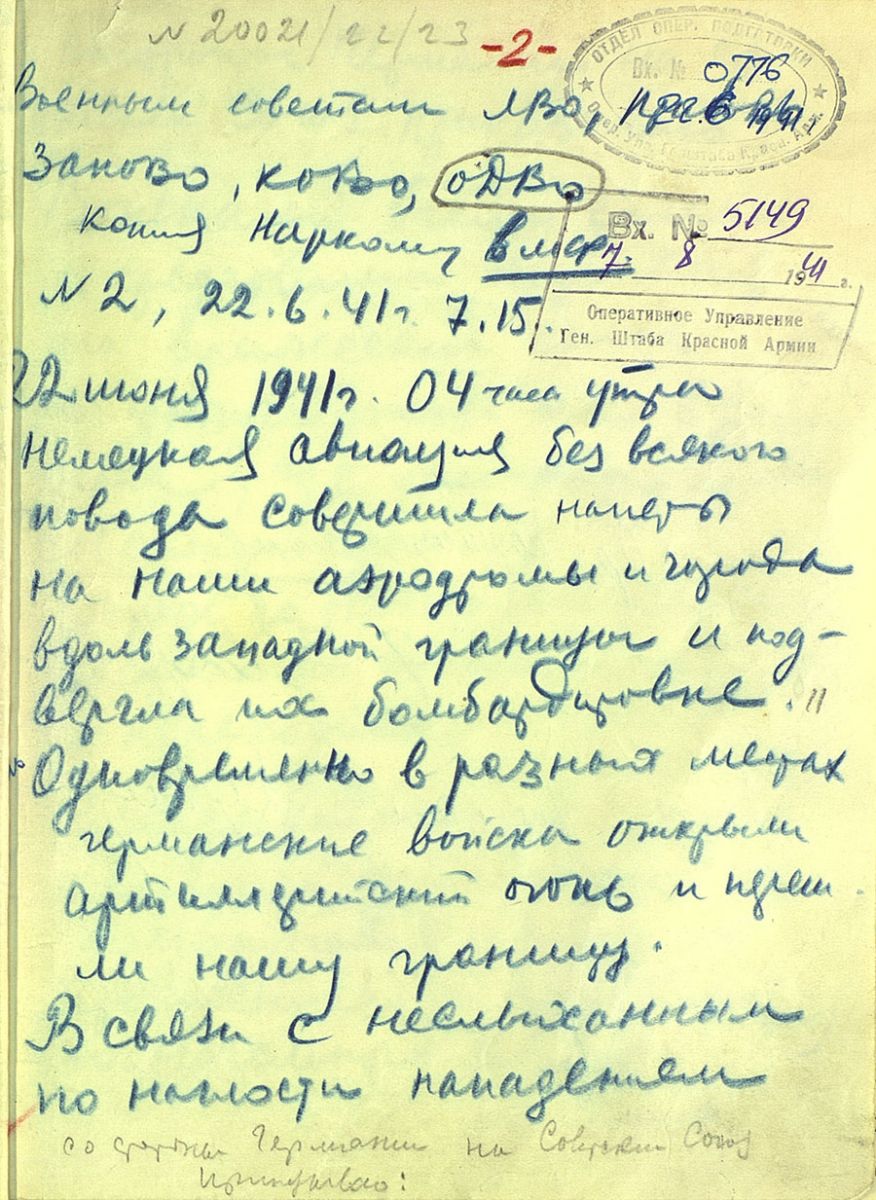 N 20021/22/23 -2-
ОТДЕЛ ОПЕР. ПОДГОТОВКИ
Вх. № 0776
22.6 1941 г.
Военным советам ЛВО, ПрибОВО,
ЗапОВО, КОВО, ОДВО
Копия Наркому ВМФ
Вх. № 5149
7. 8 1941 г.
Оперативное Управление
Ген. Штаба Красной Армии
N 2, 22.6.41г. 7.15.
22 июня 1941г. 04 часа утра
немецкая авиация без всякого
повода совершила налеты
на наши аэродромы и города
вдоль западной границы и под-
вергла их бомбардировке.
Одновременно в разных местах
германские войска открыли
артиллерийский огонь и переш-
ли нашу границу.
В связи с неслыханным
по наглости нападением
со стороны Германии на Советский Союз
Приказываю: